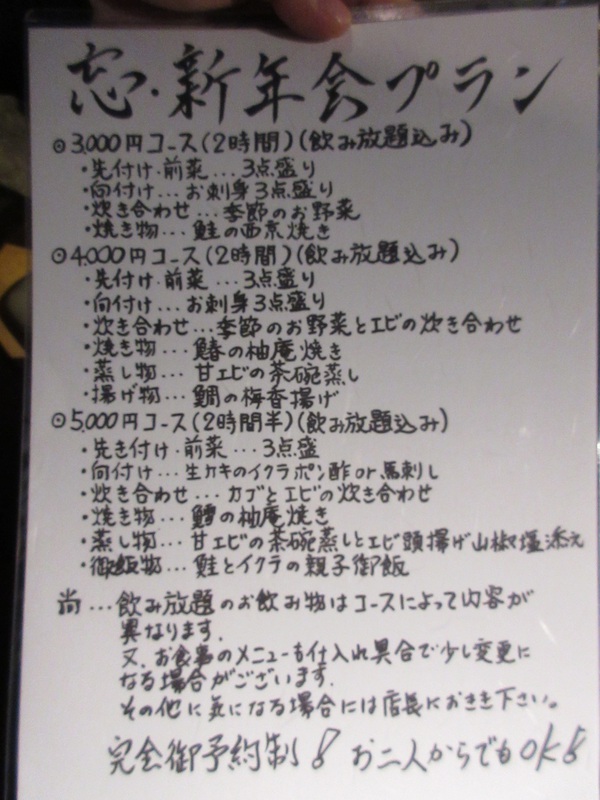 忘・新年会プラン
◎3,000円コース(2時間)(飲み放題込み)
・先付け・前菜…3点盛り
・向付け…お刺身3点盛り
・炊き合わせ…季節のお野菜
・焼き物…鮭の西京焼き
◎4,000円コース(2時間)(飲み放題込み)
・先付け・前菜…3点盛り
・向付け…お刺身3点盛り
・炊き合わせ…季節のお野菜とエビの炊き合わせ
・焼き物…鰆の柚庵焼き
・蒸し物…甘エビの茶碗蒸し
・揚げ物…鯛の梅香揚げ
◎5,000円コース(2時間半)(飲み放題込み)
・先き付け・前菜…3点盛
・向付け…生カキのイクラポン酢or馬刺し
・炊き合わせ…カブとエビの炊き合わせ
・焼き物…鱈の柚庵焼き
・蒸し物…甘エビの茶碗蒸しとエビ頭揚げ山椒塩添え
・御飯物…鮭とイクラの親子御飯
尚…飲み放題のお飲み物はコースによって内容が
異なります.
又、お食事のメニューも仕入れ具合で少し変更に
なる場合がございます.
その他に気になる場合には店長におきき下さい。
完全御予約制!! お二人からでもOK!!